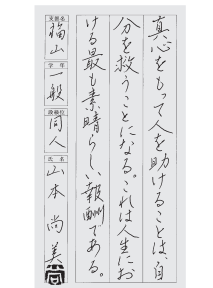 真心をもって人を助けることは、自
分を救うことになる。これは人生にお
ける最も素晴らしい報酬である。
支部名 福山 学年 一般 段級位 同人 氏名 山本尚美